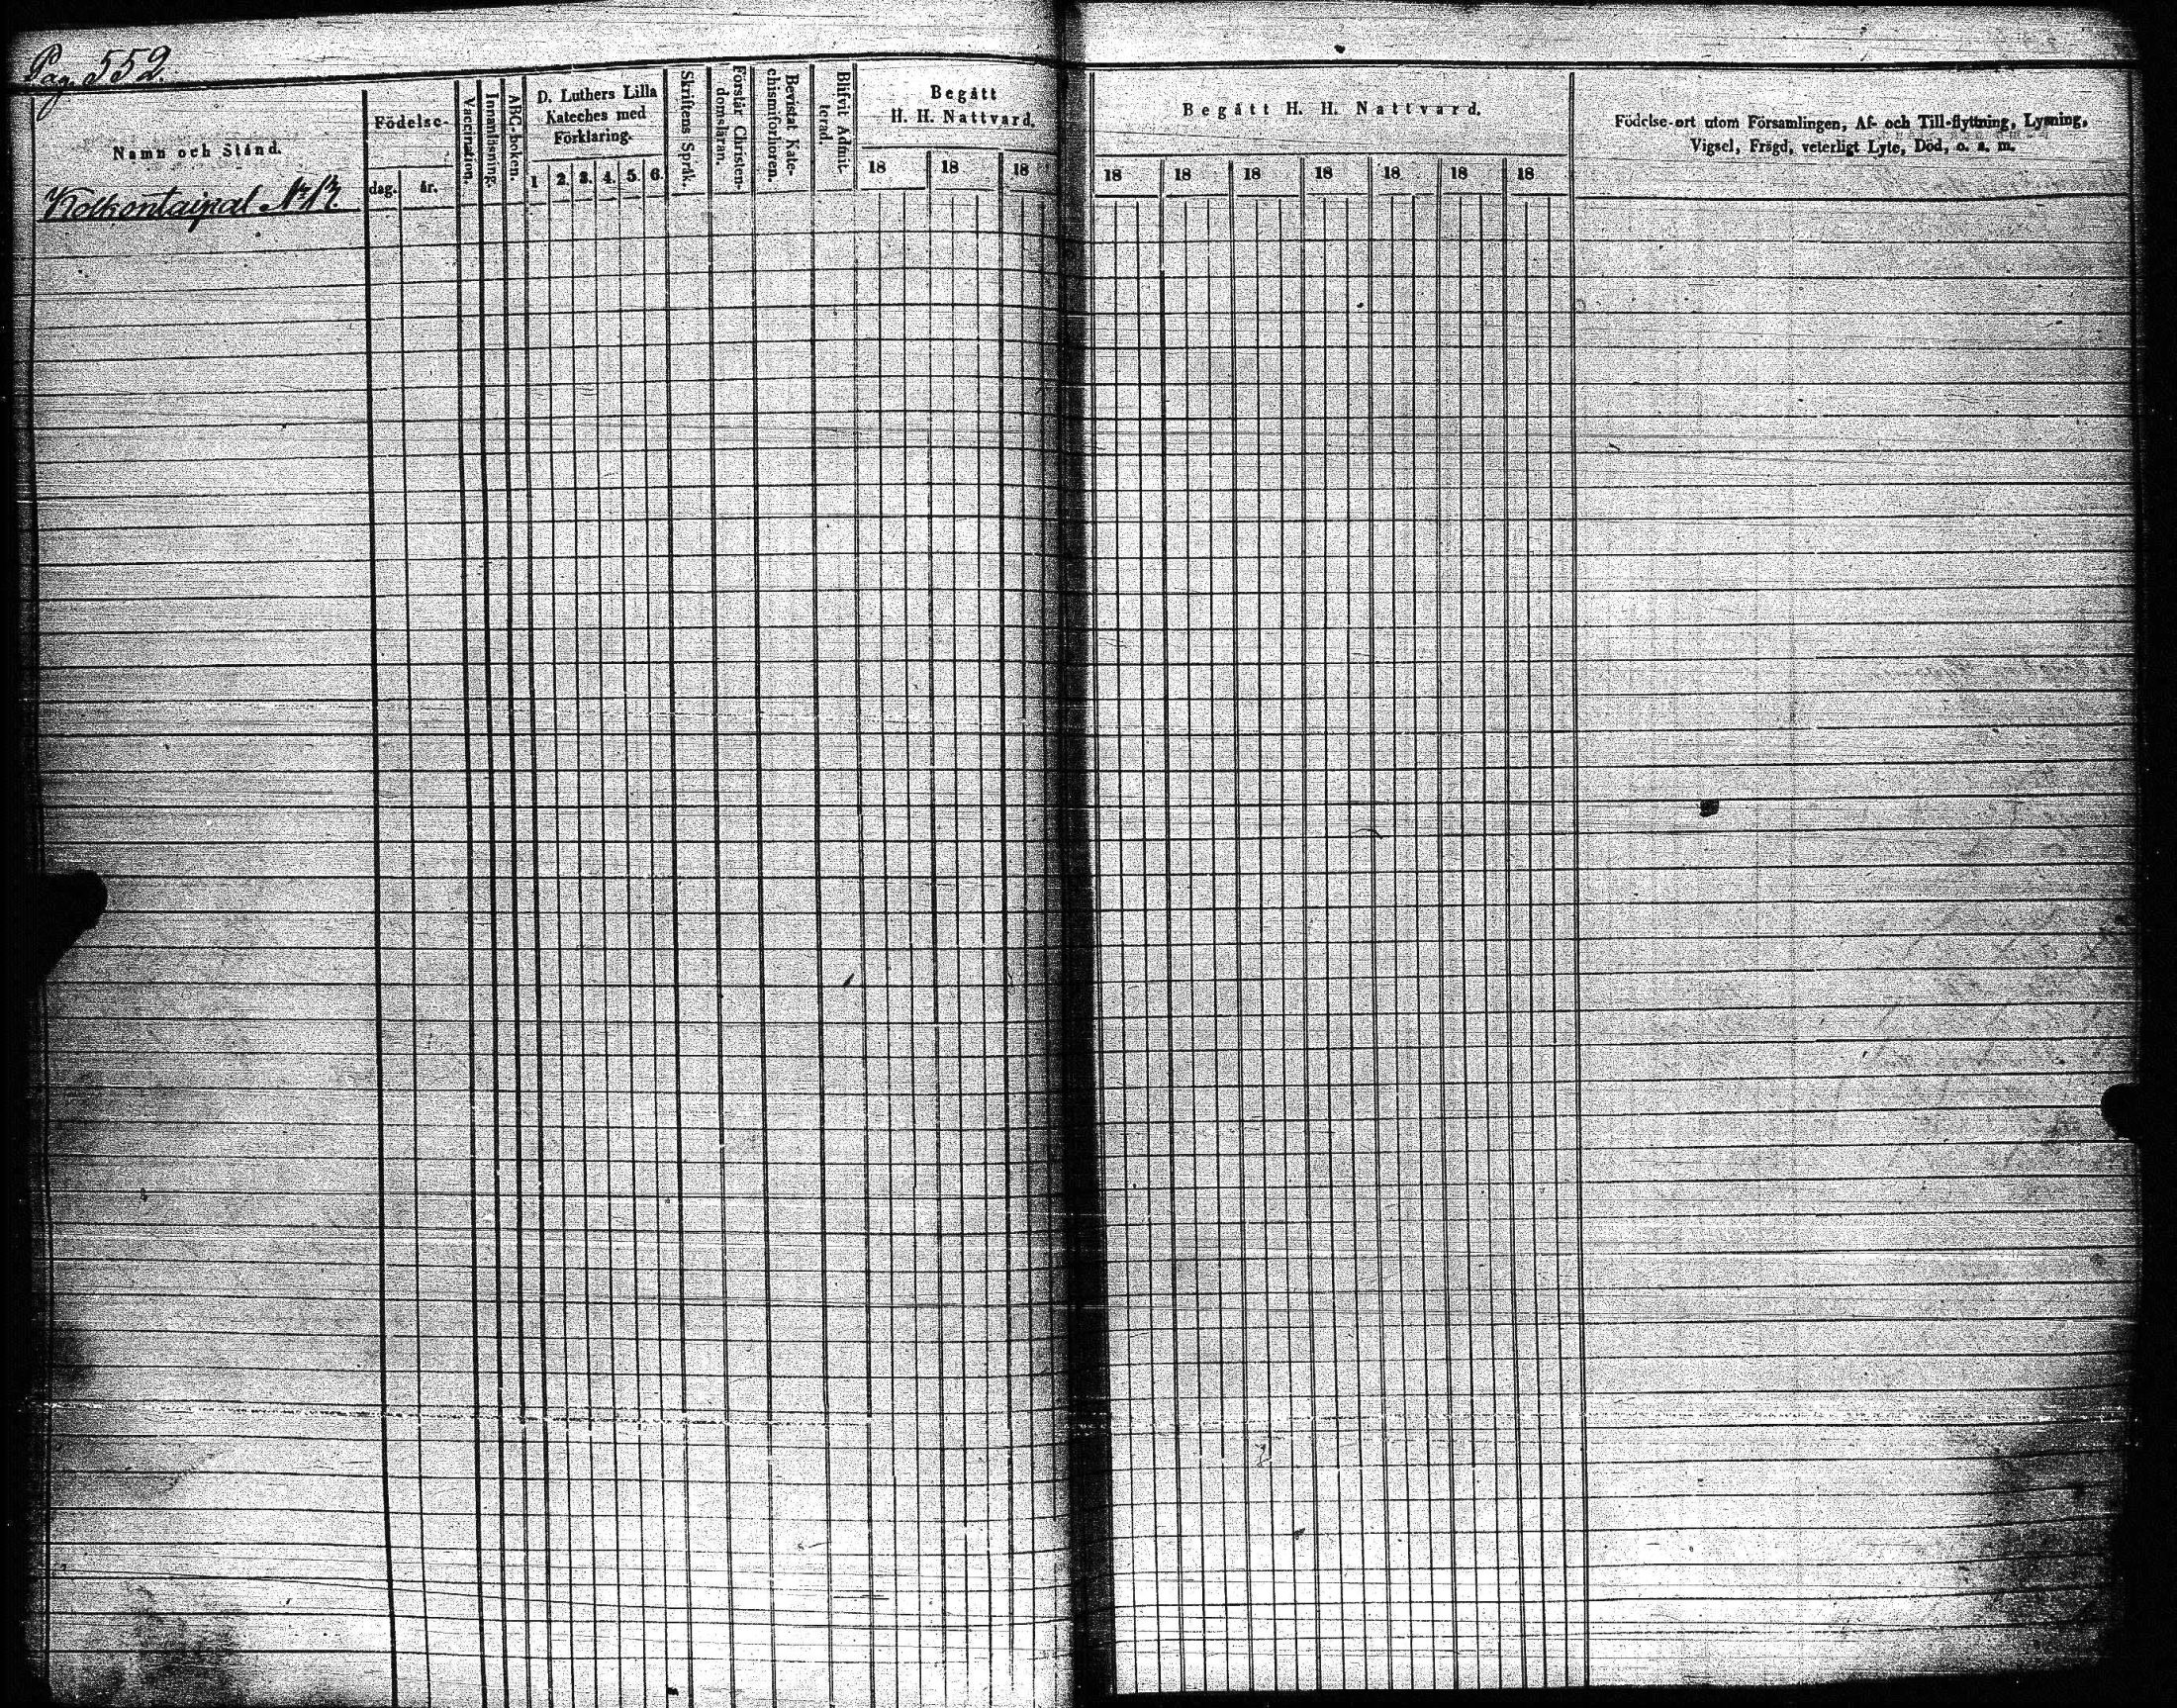 Pag. 552.
Namn och Stånd.
Kolkontaipal №
Födelse-
dag. år.
Vaccination.
Innanläsning.
ABC-boken.
D. Luthers Lilla
Kateches med
Förklaring.
1 2. 3. 4. 5. 6.
Skriftens Språk.
Förstår Christen-
domsläran.
Bevistat Kate-
chismiförhören.
Blifvit Admit-
terad.
Begått
H. H. Nattvard.
18 18 18
Begått H. H. Nattvard.
18 18 18 18 18 18 18
Födelse-ort utom Församlingen, Af- och Till-flyttning, Lysning,
Vigsel, Frägd, veterligt Lyte, Död, o. s. m.